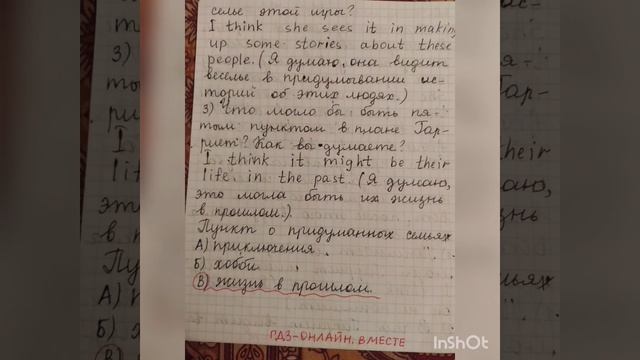 селье этой игры?
I think she sees it in making
up some stories about these
people. (Я думаю, она видит
веселье в придумывании ис-
торий об этих людях.)
3) Что могло бы быть пя-
тым пунктом в плане Гар-
риет? Как вы думаете?
I think it might be their
life in the past. (Я думаю,
это могла быть их жизнь
в прошлом.).
Пункт о придуманных семьях
А) приключения
Б) хобби
В) жизнь в прошлом.
ГДЗ-ОНЛАЙН. ВМЕСТЕ
InShOt